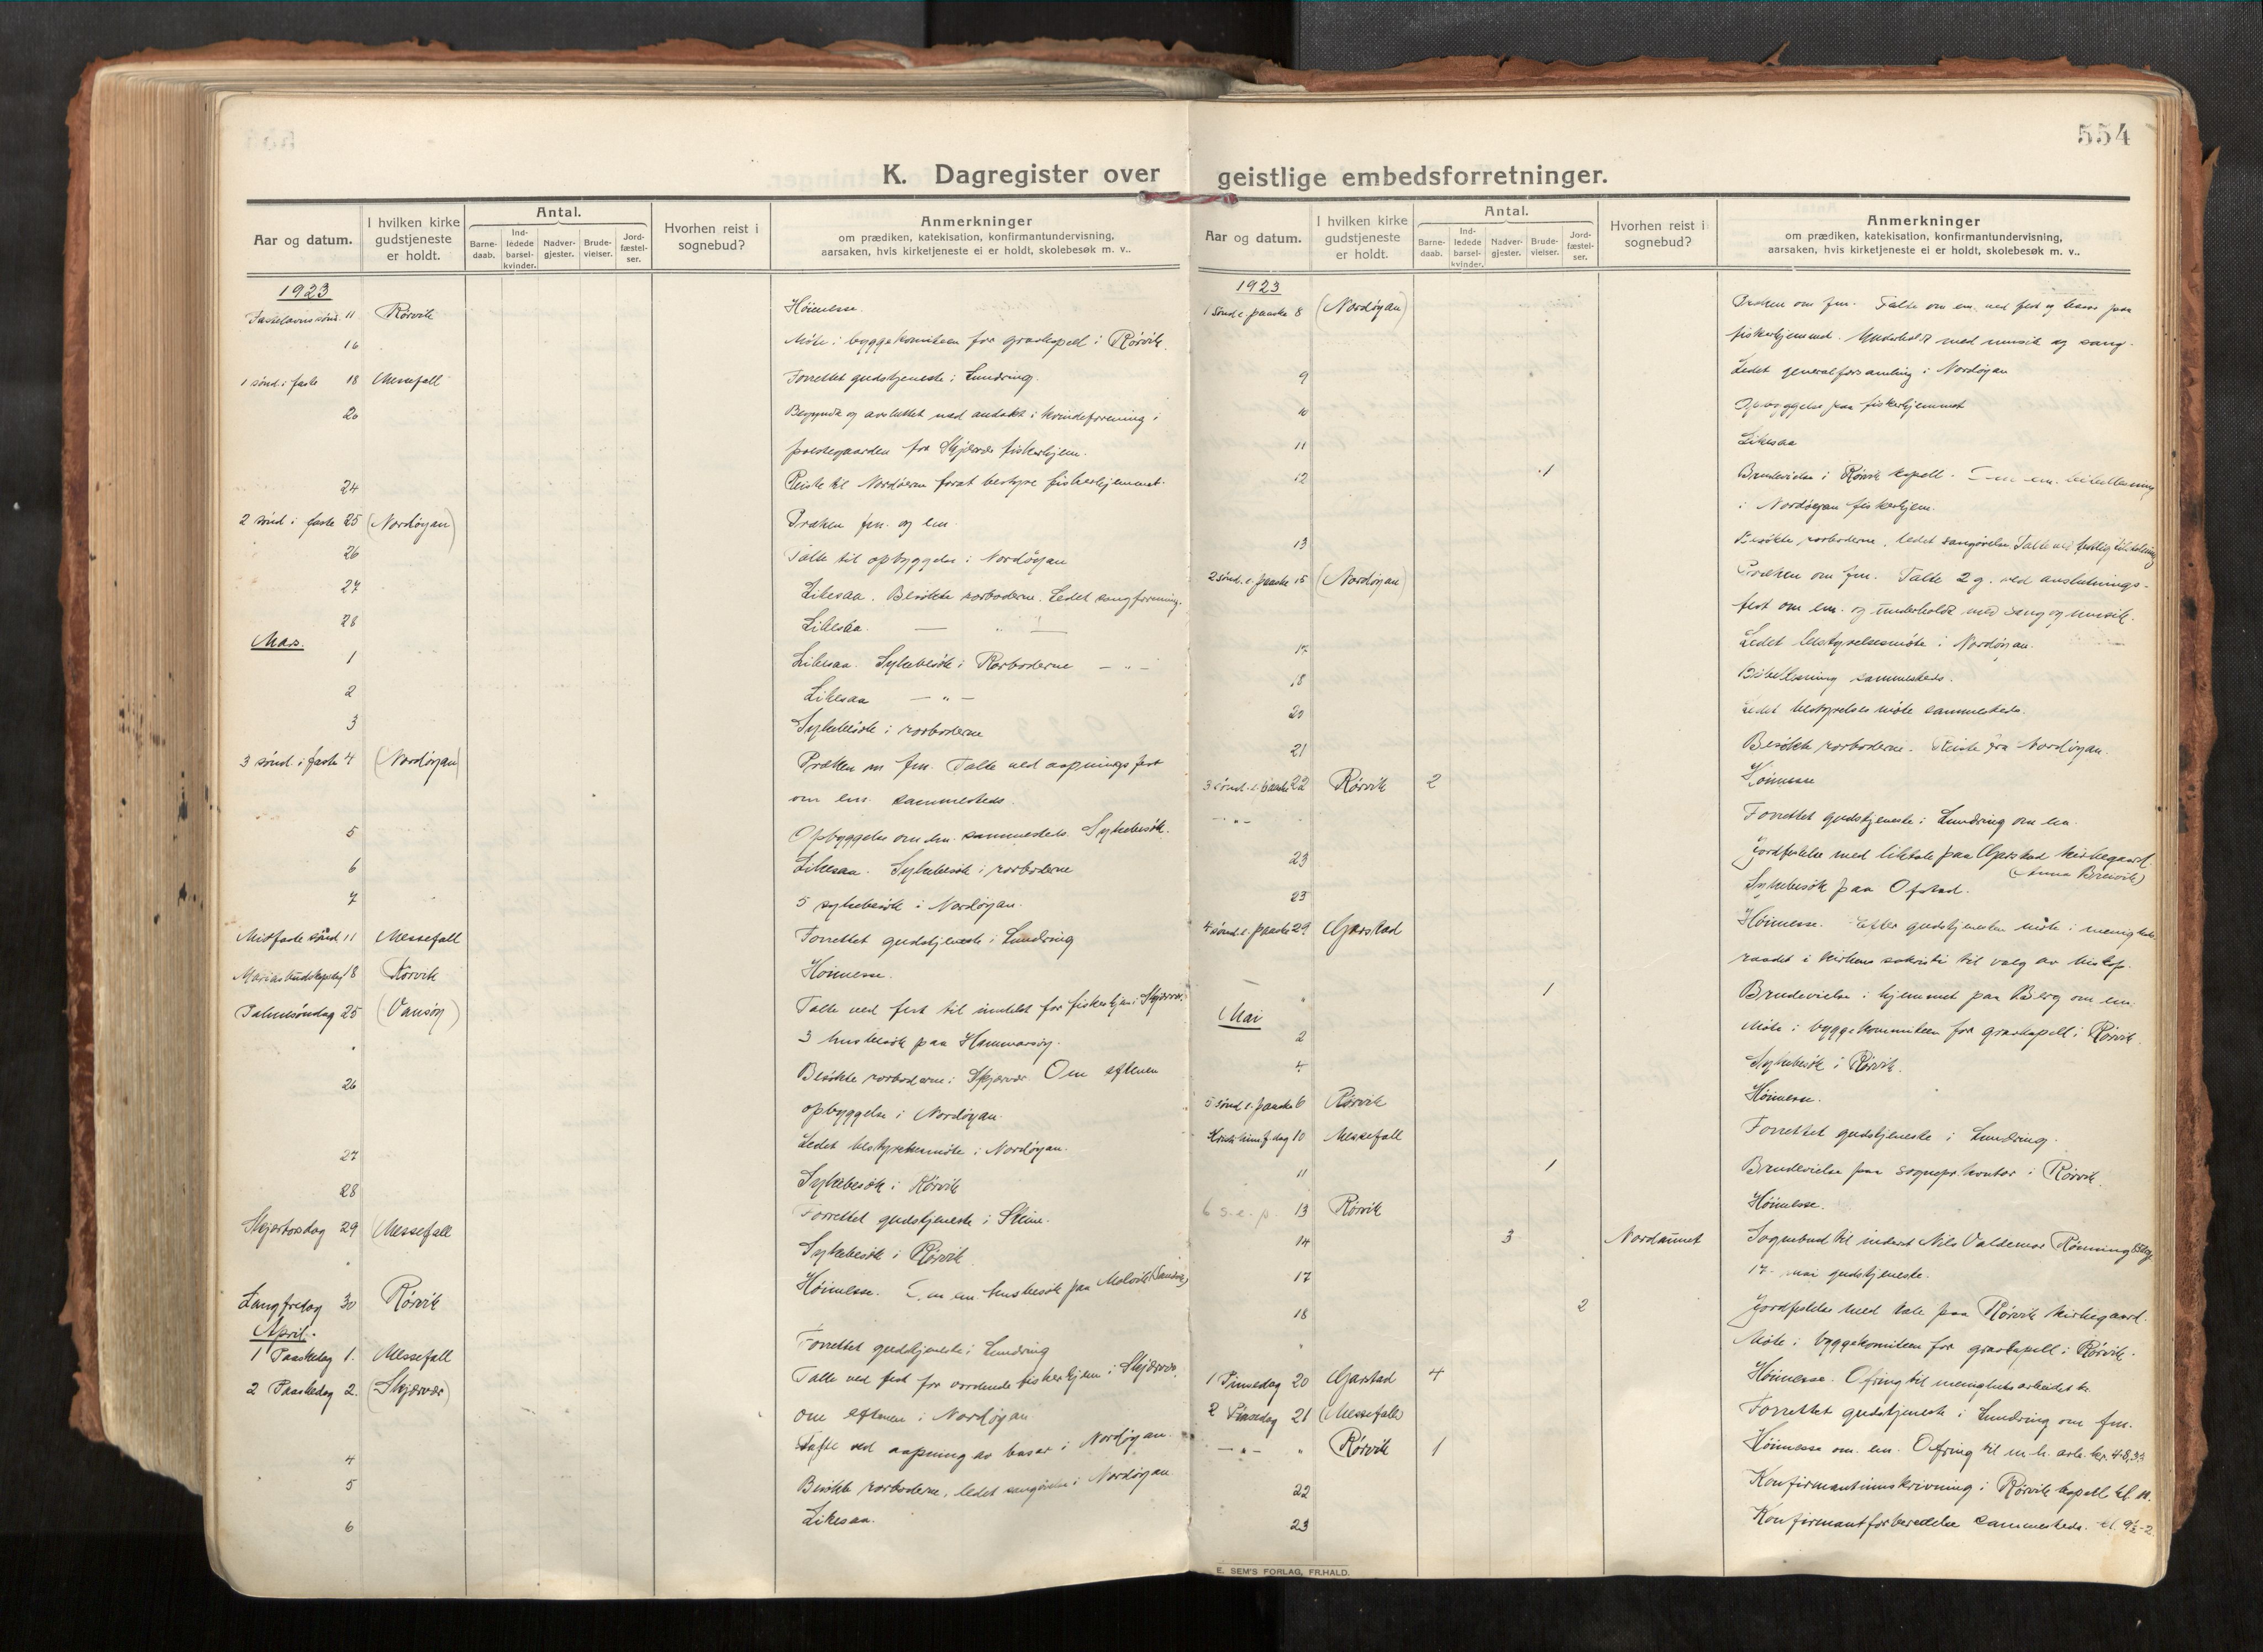 554
K. Dagregister over geistlige embedsforretninger.
Aar og datum.
I hvilken kirke gudstjeneste er holdt.
Antal.
Barne-daab.
Ind-ledede barsel-kvinder.
Nadver-gjester.
Brude-vielser.
Jord-fæstel-ser.
Hvorhen reist i sognebud?
Anmerkninger
om prædiken, katekisation, konfirmantundervisning,
aarsaken, hvis kirketjeneste ei er holdt, skolebesøk m. v..
1923
Fastelavnssønd. 11 Rørvik Høimesse.
16 Møte i byggekomiteen for gravkapel i Rørvik.
1 sønd. i faste 18 Messefall Forrettet gudstjeneste i Lundring.
20 Begyndt og avsluttet med andakt i kvindeforening i
prestegaarden for Skjærvær fiskerhjem.
24 Reiste til Nordøerne forat bestyre fiskerhjemmet.
2 sønd i faste 25 (Nordøyan) Præken fm. og em.
26 Talte til opbyggelse i Nordøyan
27 Likesaa. Besøkte rorboderne. Ledet sangforening.
28 Likesaa. — " —
Mars.
1 Likesaa. Sykebesøk i Rorboderne — " —
2 Likesaa — " —
3 Sykebesøk i rorboderne
3 sønd. i faste 4 (Nordøyan) Præken om fm. Talte ved aapningsfest
om em. sammesteds.
5 Opbyggelse om em. sammesteds. Sykebesøk.
6 Likesaa. Sykebesøk i rorboderne
7 5 sykebesøk i Nordøyan.
Midfaste sønd 11 Messefall Forrettet gudstjeneste i Lundring
Mariæ budskapsdag 18 Rørvik Høimesse.
Palmesøndag 25 (Vansøy) Talte ved fest til inntekt for fiskerhjem i Skjærvær.
" 3 husbesøk paa Hammarøy.
26 Besøkte rorboderne i Skjærvær. Om aftenen
opbyggelse i Nordøyan.
27 Ledet bestyrelsesmøte i Nordøyan.
28 Sykebesøk i Rørvik
Skjærtorsdag 29 Messefall Forrettet gudstjeneste i Steine.
" Sykebesøk i Rørvik
Langfredag 30 Rørvik Høimesse. Om em husbesøk paa Molvik (Sandvik)
April.
1 Paaskedag 1. Messefall Forrettet gudstjeneste i Lundring
2 Paaskedag 2. (Skjærvær) Talte ved fest for vordende fiskerhjem i Skjærvær.
Om aftenen i Nordøyan
4 Talte ved aapning av basar i Nordøyan.
5 Besøkte rorboderne, ledet sangøvelse i Nordøyan
6 Likesaa.
Aar og datum.
I hvilken kirke gudstjeneste er holdt.
Antal.
Barne-daab.
Ind-ledede barsel-kvinder.
Nadver-gjester.
Brude-vielser.
Jord-fæstel-ser.
Hvorhen reist i sognebud?
Anmerkninger
om prædiken, katekisation, konfirmantundervisning,
aarsaken, hvis kirketjeneste ei er holdt, skolebesøk m. v..
1923
1 sønd e. paaske 8 (Nordøyan) Præken om fm. Talte om em. ved fest og basar paa
fiskerhjemmet. Underholdt med musik og sang.
9 Ledet generalforsamling i Nordøyan
10 Opbyggelse paa fiskerhjemmet
11 Likesaa
12 1 Brudevielse i Rørvik kapell. Om em. bibellesning
i Nordøyan fiskerhjem.
13 Besøkte rorboderne, ledet sangøvelse. Talte ved
2 sønd. e. paaske 15 (Nordøyan) Præken om fm. Talte 2 g. ved avslutnings-
fest om em. og underholdt med sang og musik.
17 Ledet bestyrelsesmøte i Nordøyan.
18 Bibellesning sammesteds.
20 Ledet bestyrelsesmøte sammesteds.
21 Besøkte rorboderne. Reiste fra Nordøyan.
3 sønd. e. paaske 22 Rørvik 2 Høimesse
— " — Forrettet gudstjeneste i Lundring om em.
23 Jordfestelse med liktale paa Garstad kirkegaard.
(Anna Breivik)
23 Sykebesøk paa Ofstad.
4 sønd e. paaske 29 Garstad Høimesse. Efter gudstjenesten møte i menighets-
raadet i kirkens sakristi til valg av biskop.
" 1 Brudevielse i hjemmet paa Berg om em.
Mai
2 Møte i byggekommiteen for gravkapell i Rørvik.
4 Sykebesøk i Rørvik.
5 sønd e. paaske 6 Rørvik Høimesse.
Kristi himf. dag 10 Messefall Forrettet gudstjeneste i Lundring.
11 1 Brudevielse paa sognepr. kontor i Rørvik.
6 s. e. p. 13 Rørvik Høimesse.
14 3 Nordaunet Sognebud til inderst Nils Valdemar Rønning
17 17. mai gudstjeneste.
18 2 Jordfestelse med tale paa Rørvik kirkegaard.
" Møte i byggekomiteen for gravkapell i Rørvik.
1 Pinsedag 20 Garstad 4 Høimesse. Ofring til menighetsarbeidet kr.
2 Pinsedag 21 (Messefall) Forrettet gudstjeneste i Lundring om fm.
— " — " Rørvik 1 Høimesse om. em. Ofring til m.h. arb. kr. 48,33
22 Konfirmantinnskrivning i Rørvik kapell kl. 10.
23 Konfirmantforberedelse sammesteds. kl. 9½-2
E. SEM'S FORLAG, FR.HALD.